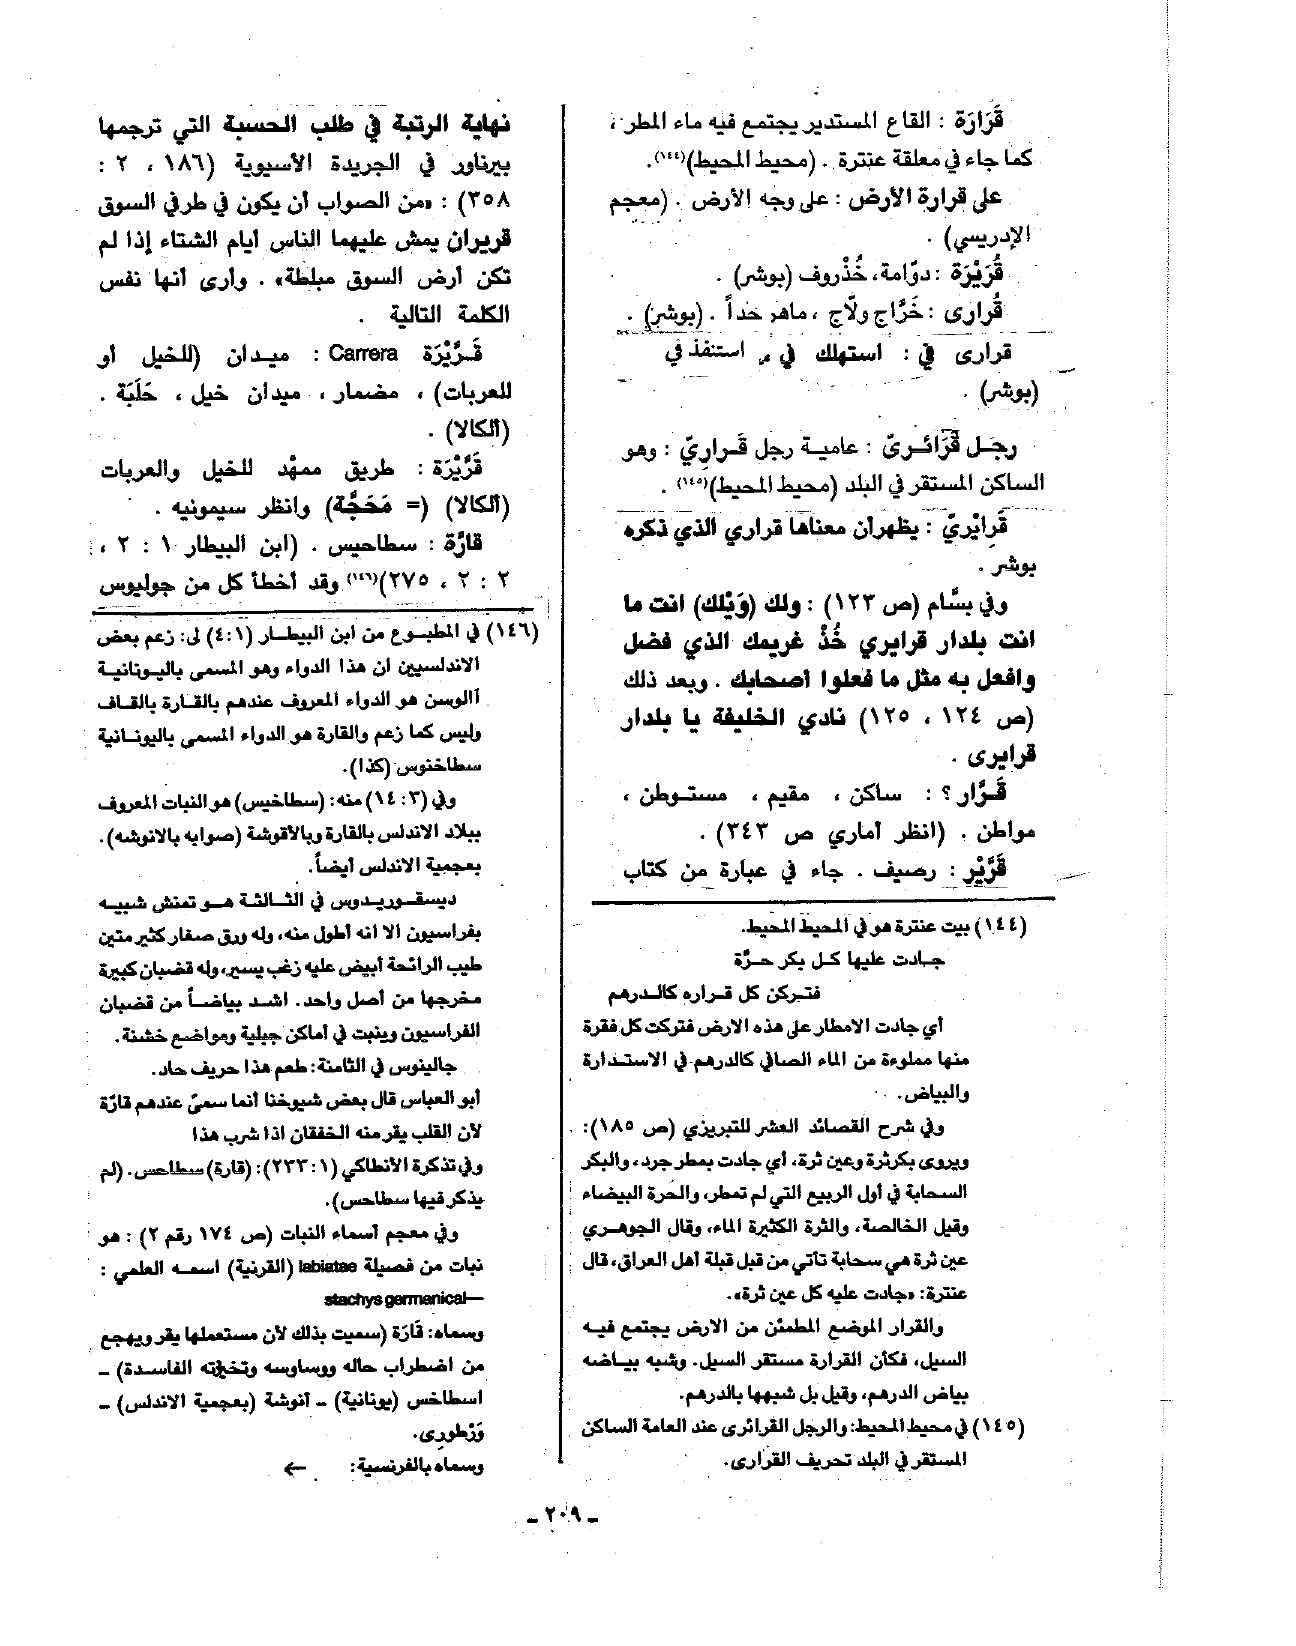 قَرَارَة : القاع المستدير يجتمع فيه ماء المطر ،
كما جاء في معلقة عنترة . (محيط المحيط)(١٤٤).
على قرارة الأرض : على وجه الأرض . (معجم
الإدريسي) .
قُرَيْرَة : دوّامة، خُذْروف (بوشر) .
قُرارى : خَرَّاج ولّاج ، ماهر جداً . (بوشر) .
قرارى في : استهلك في ، استنفذ في
(بوشر) .
رجل قَرَائريّ : عامية رجل قَراريّ : وهو
الساكن المستقر في البلد (محيط المحيط)(١٤٥) .
قَرايْريّ : يظهر أن معناها قراري الذي ذكره
بوشر .
وفي بسَّام (ص ١٢٣) : ولك (وَيْلك) انت ما
انت بلدار قرايري خُذْ غريمك الذي فضل
وافعل به مثل ما فعلوا أصحابك . وبعد ذلك
(ص ١٢٤ ، ١٢٥) نادي الخليفة يا بلدار
قرايرى .
قَرَّار ؟ : ساكن ، مقيم ، مستوطن ،
مواطن . (انظر أماري ص ٣٤٣) .
قَرَّيْر : رصيف . جاء في عبارة من كتاب
(١٤٤) بيت عنترة هو في المحيط المحيط.
جادت عليها كل بكر حرَّة
فتركن كل قراره كالدرهم
أي جادت الامطار على هذه الارض فتركت كل فقرة
منها مملوءة من الماء الصافي كالدرهم في الاستدارة
والبياض.
وفي شرح القصائد العشر للتبريزي (ص ١٨٥):
ويروى بكر ثرة وعين ثرة، أي جادت بمطر جرد، والبكر
السحابة في أول الربيع التي لم تمطر، والحرة البيضاء
وقيل الخالصة، والثرة الكثيرة الماء، وقال الجوهري
عين ثرة هي سحابة تأتي من قبل قبلة أهل العراق، قال
عنترة: «جادت عليه كل عين ثرة».
والقرار الموضع المطمئن من الارض يجتمع فيه
السيل، فكأن القرارة مستقر السيل. وشبه بياضه
بياض الدرهم، وقيل بل شبهها بالدرهم.
(١٤٥) في محيط المحيط: والرجل القرائرى عند العامة الساكن
المستقر في البلد تحريف القرارى.
نهاية الرتبة في طلب الحسبة التي ترجمها
بيرناور في الجريدة الأسيوية (١٨٦ ، ٢ :
٣٥٨) : «من الصواب أن يكون في طرفي السوق
قريران يمش عليهما الناس أيام الشتاء إذا لم
تكن أرض السوق مبلطة» . وأرى أنها نفس
الكلمة التالية .
قَرَّيْرَة Carrera : ميدان (للخيل أو
للعربات) ، مضمار ، ميدان خيل ، حَلَبَة .
(ألكالا) .
قَرَّيْرَة : طريق ممهّد للخيل والعربات
(ألكالا) (= مَحَجَّة) وانظر سيمونيه .
قارَّة : سطاحيس . (ابن البيطار ١ : ٢ ،
٢ : ٢ ، ٢٧٥)(١٤٦) وقد أخطأ كل من جوليوس
(١٤٦) في المطبوع من ابن البيطار (٤:١) لى: زعم بعض
الاندلسيين ان هذا الدواء وهو المسمى باليونانية
آالوسن هو الدواء المعروف عندهم بالقارة بالقاف
وليس كما زعم والقارة هو الدواء المسمى باليونانية
سطاخنوس (كذا).
وفي (٣: ١٤) منه: (سطاخيس) هو النبات المعروف
ببلاد الاندلس بالقارة وبالاقوشة (صوابه بالانوشه).
بعجمية الاندلس أيضاً.
ديسقوريدوس في الثالثة هو تمنش شبيه
بفراسيون الا انه أطول منه، وله ورق صغار كثير متين
طيب الرائحة أبيض عليه زغب يسير، وله قضبان كبيرة
مخرجها من أصل واحد. اشد بياضاً من قضبان
الفراسيون وينبت في أماكن جبلية ومواضع خشنة.
جالينوس في الثامنة: طعم هذا حريف حاد.
أبو العباس قال بعض شيوخنا أنما سميَ عندهم قارّة
لأن القلب يقر منه الخفقان اذا شرب هذا
وفي تذكرة الأنطاكي (١: ٢٣٣): (قارة) سطاحس. (لم
يذكر فيها سطاحس).
وفي معجم أسماء النبات (ص ١٧٤ رقم ٢) : هو
نبات من فصيلة labiatae (القرنية) اسمه العلمي :
stachys germanical—
وسماه: قَارَة (سميت بذلك لأن مستعملها يقر ويهجع
من اضطراب حاله ووساوسه وتخيلاته الفاسدة) –
اسطاخس (يونانية) – آنوشة (بعجمية الاندلس) –
وَرْطورى.
وسماه بالفرنسية: ←
– ٢٠٩ –